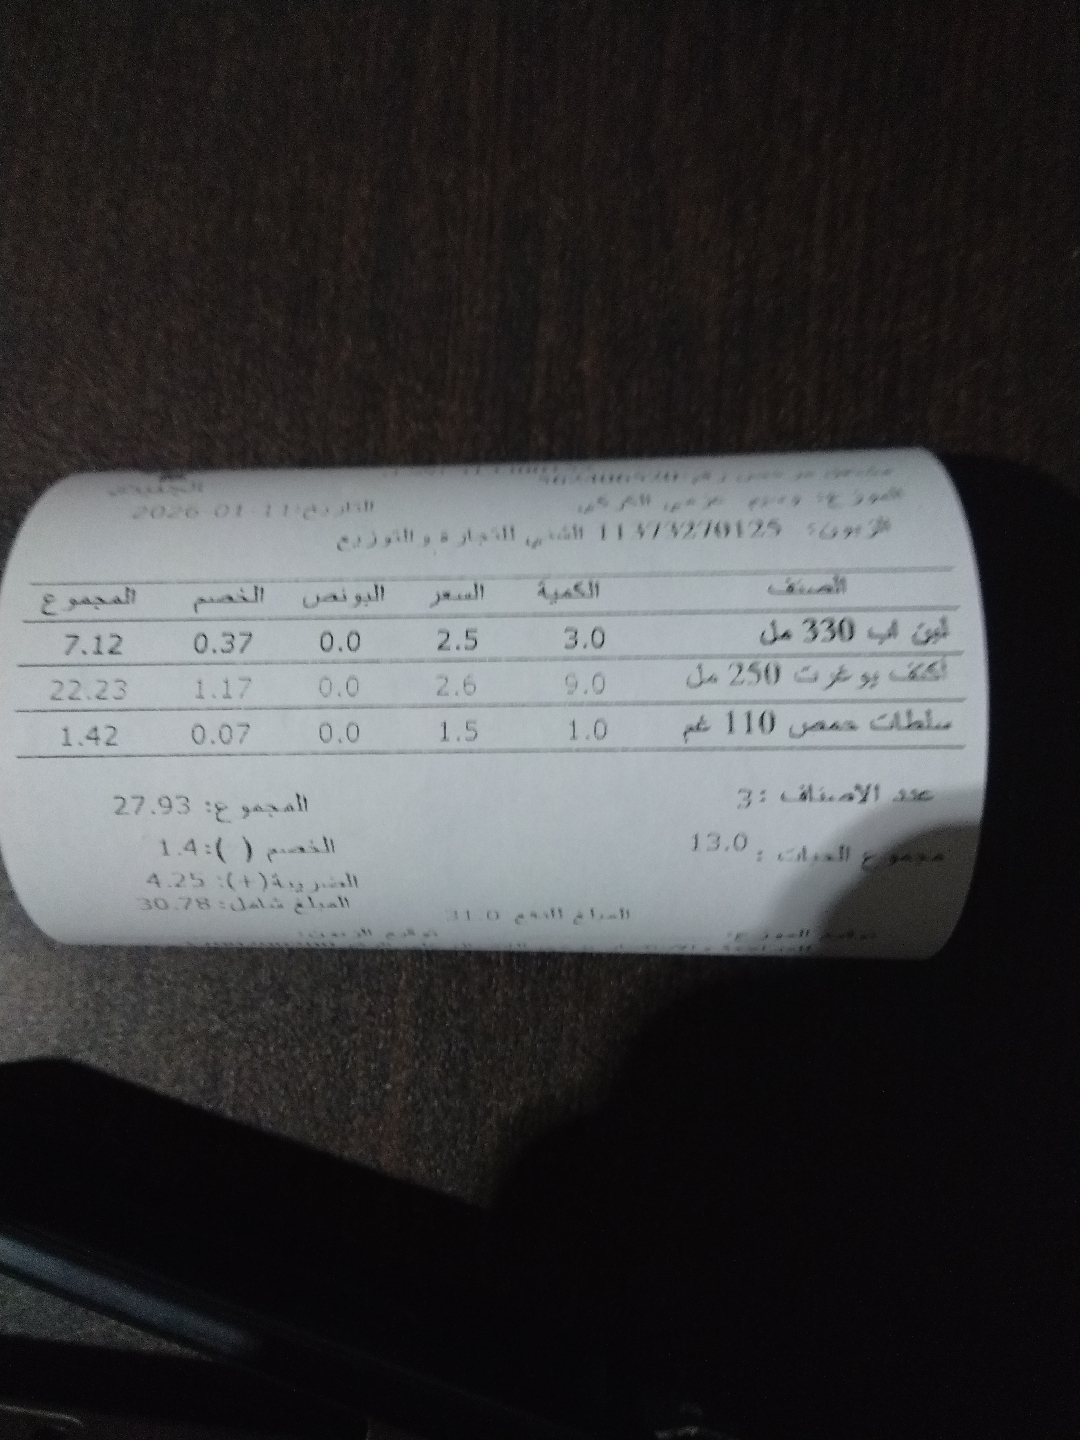 التاريخ: 11-01-2026
الزبون: 11373270125 الشني للتجارة و التوزيع
الصنف الكمية السعر البونص الخصم المجموع
لبن اب 330 مل 3.0 2.5 0.0 0.37 7.12
يوغرت 250 مل 9.0 2.6 0.0 1.17 22.23
سلطات حمص 110 غم 1.0 1.5 0.0 0.07 1.42
عدد الاصناف :3 المجموع: 27.93
مجموع الحبات : 13.0 الخصم ( ):1.4
الضريبة(+): 4.25
المبلغ شامل: 30.78
المبلغ الدفع 31.0
توقيع الموزع: توقيع الزبون: